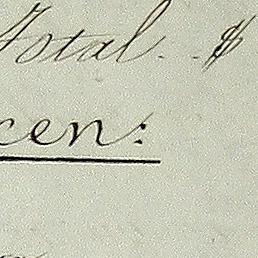 Total. . $
cen: